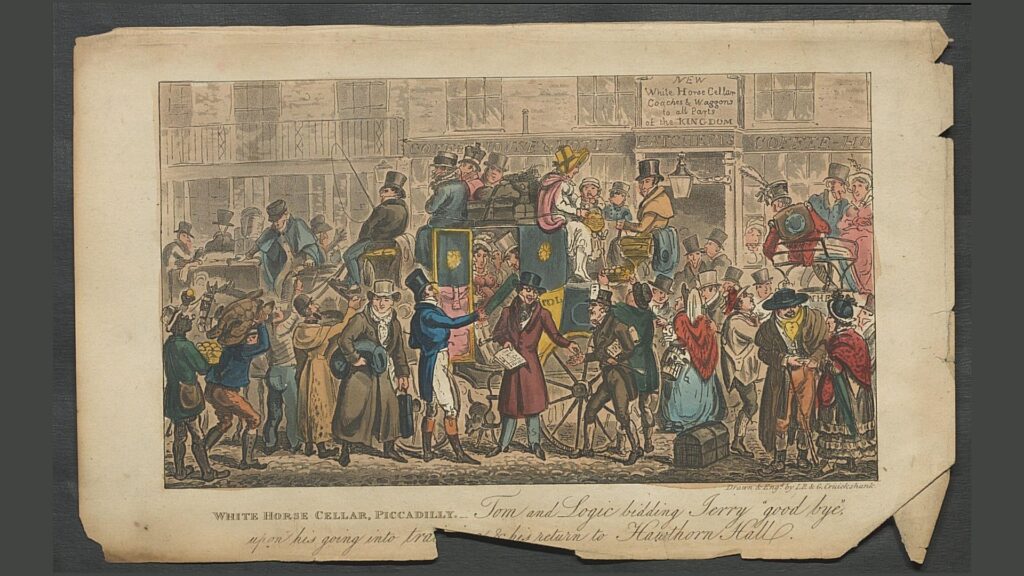 NEW
White Horse Cellar
Coaches & Waggons
to all Parts
of the KINGDOM
COFFEE
THE
Drawn & Engd. by I.R. & G. Cruickshank
WHITE HORSE CELLAR, PICCADILLY... Tom and Logic bidding Jerry "good bye",
upon his going into tra & his return to Hawthorn Hall.